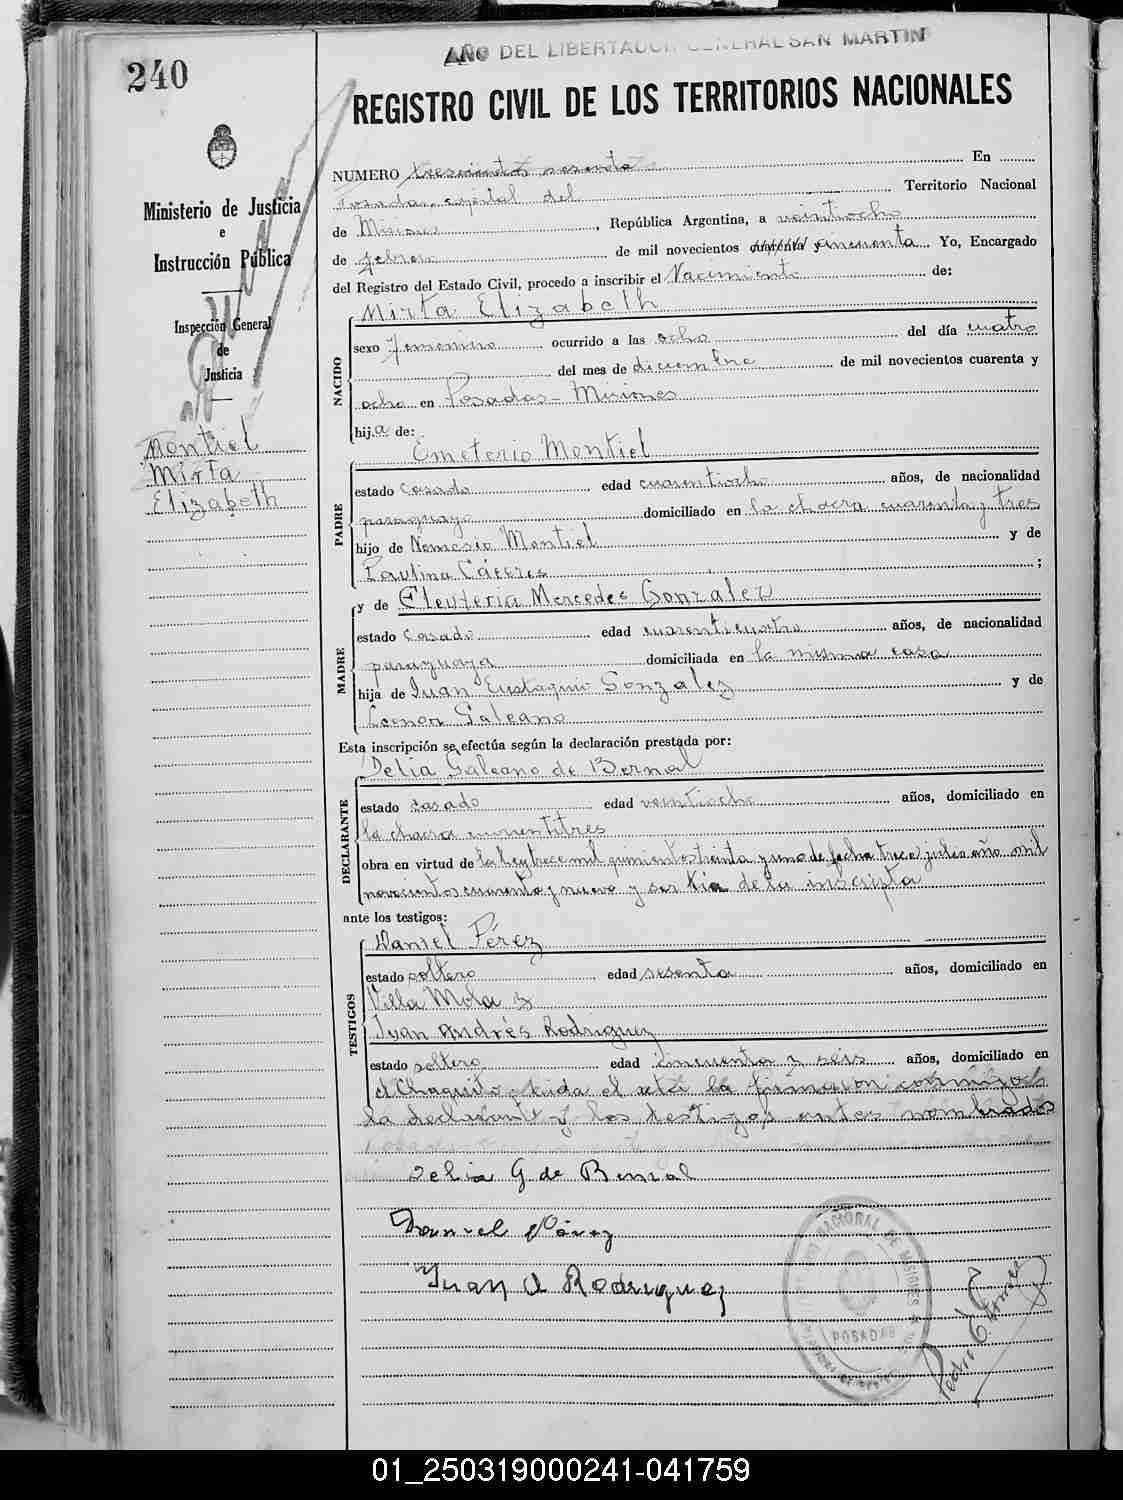 AÑO DEL LIBERTADOR GENERAL SAN MARTIN
240
REGISTRO CIVIL DE LOS TERRITORIOS NACIONALES
Ministerio de Justicia
e
Instrucción Pública
Inspección General
de
Justicia
Montiel
Mirta
Elizabeth
NUMERO trescientos sesenta En
Posadas, capital del Territorio Nacional
de Misiones, República Argentina, a veintiocho
de febrero de mil novecientos cuarenta y cincuenta Yo, Encargado
del Registro del Estado Civil, procedo a inscribir el Nacimiento de:
Mirta Elizabeth
NACIDO
sexo femenino ocurrido a las ocho del día cuatro
del mes de diciembre de mil novecientos cuarenta y
ocho en Posadas - Misiones
hija de:
PADRE
Emeterio Montiel
estado casado edad cuarentiocho años, de nacionalidad
paraguayo domiciliado en la chacra cuarenta y tres
hijo de Nemesio Montiel y de
Paulina Cáceres ;
MADRE
y de Eleuteria Mercedes Gonzalez
estado casado edad cuarenticuatro años, de nacionalidad
paraguaya domiciliada en la misma casa
hija de Juan Eustaquio Gonzalez y de
Leonor Galeano
Esta inscripción se efectúa según la declaración prestada por:
DECLARANTE
Delia Galeano de Bernal
estado casado edad veintiocho años, domiciliado en
la chacra cuarentitres
obra en virtud de la ley trece mil quinientos treinta y uno de fecha trece julio año mil
novecientos cuarenta y nueve y ser tia de la inscripta
ante los testigos:
TESTIGOS
Daniel Pérez
estado soltero edad sesenta años, domiciliado en
Villa Mola y
Juan Andrés Rodriguez
estado soltero edad cincuenta y seis años, domiciliado en
el Chaquito. leida el acta la firmaron conmigo
la declarante y los testigos antes nombrados
Delia G de Bernal
Daniel Pérez
Juan A Rodriguez
POSADAS
01_250319000241-041759